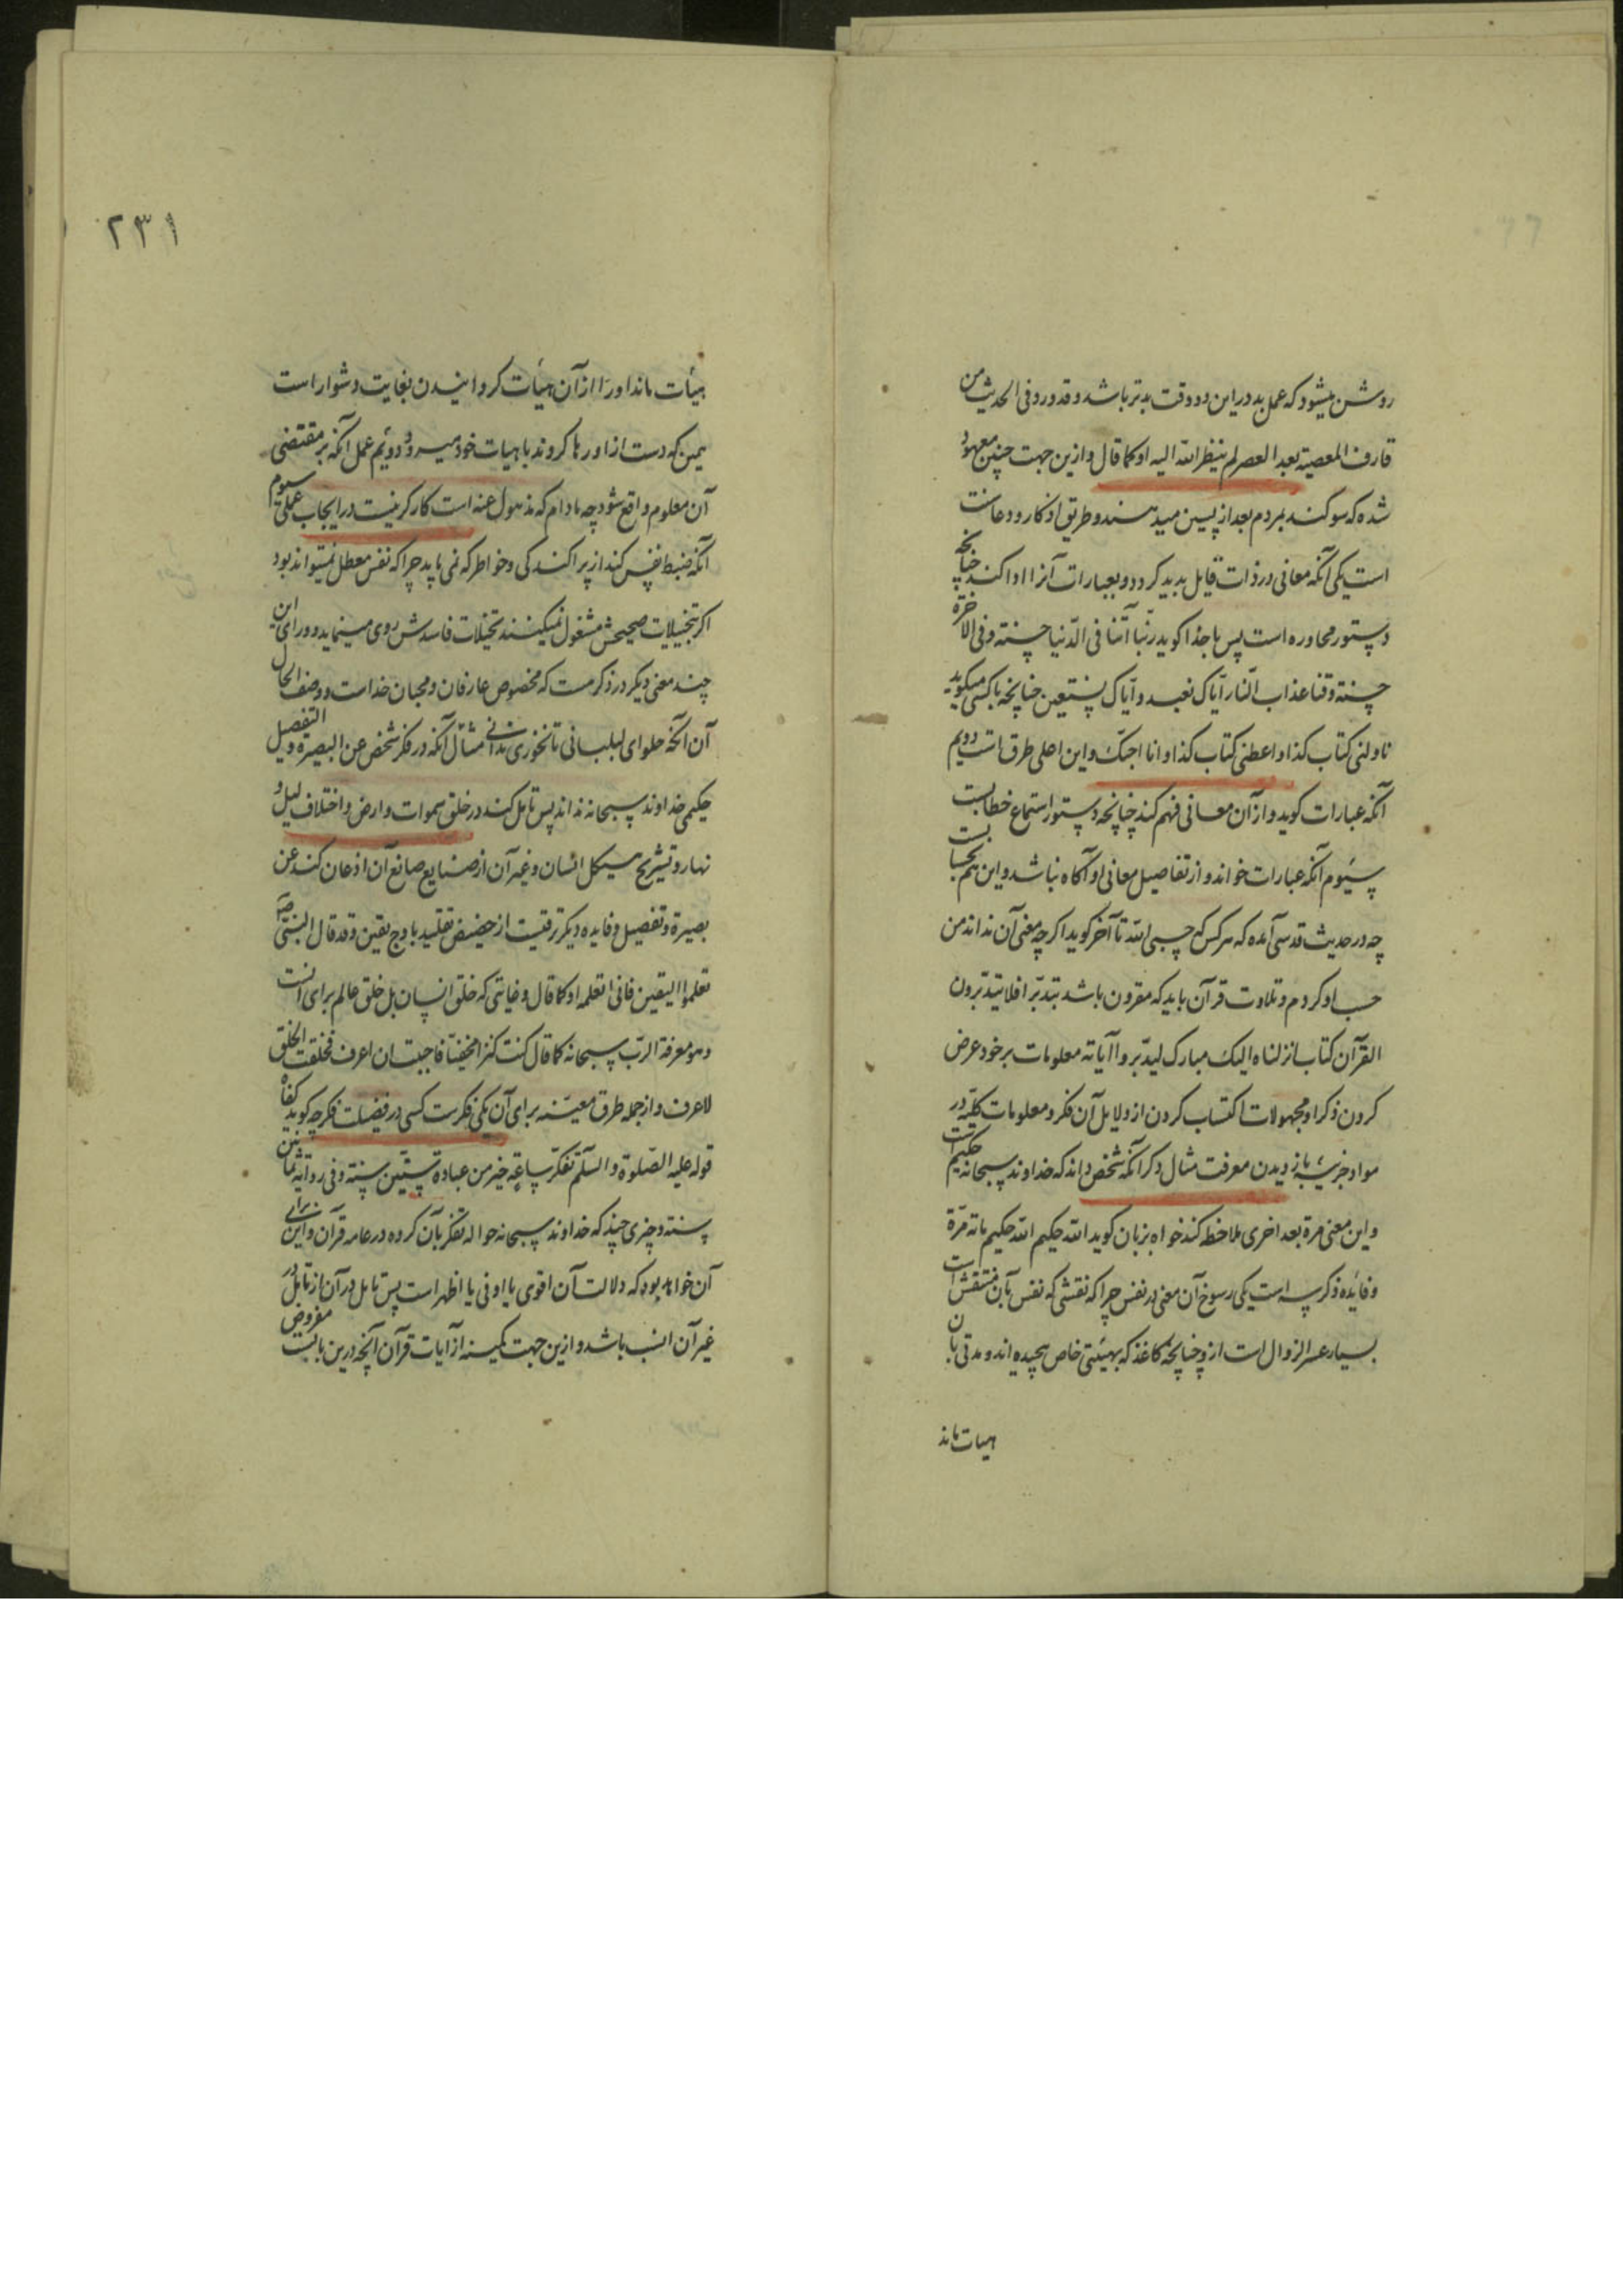 روشن میشود که عمل بد در این دو وقت بدتر باشد و قد ورد فی الحدیث من
قارف المعصیة بعد العصر لم ینظر الله الیه او کما قال و ازین جهت چنین معهود
شده که سوکند بمردم بعد از پسین میدهند و طریق اذکار و دعا
است یکی آنکه معانی در ذات قایل بدید کردد و بعبارات آنرا ادا کند چنانچه
دستور محاوره است پس با خدا کوید ربنا آتنا فی الدنیا حسنة و فی الآخرة
حسنة و قنا عذاب النار ایاک نعبد و ایاک نستعین چنانچه با کسی میکوید
ناولنی کتاب کذا و اعطنی کتاب کذا و انا احبک و این اعلی طرق است دویم
آنکه عبارات کوید و از آن معانی فهم کند چنانچه دستور استماع خطابست
سیوم آنکه عبارات خواند و از تفاصیل معانی او آکاه نباشد و این هم
چه در حدیث قدسی آمده که هر کس که حسبی الله تا آخر کوید اکر چه معنی آن نداند من
حسب او کردم و تلاوت قرآن باید که مقرون باشد بتدبر افلا یتدبرون
القرآن کتاب انزلناه الیک مبارک لیدبروا آیاته معلومات بر خود عرض
کردن ذکر و مجهولات اکتساب کردن از دلایل آن فکر و معلومات کلیه در
مواد جزییه باز دیدن معرفت مثال ذکر آنکه شخص داند که خداوند سبحانه حکیم است
و این معنی مرة بعد اخری ملاحظه کند خواه بزبان کوید الله حکیم الله حکیم مائه مرة
و فائده ذکر سه است یکی رسوخ آن معنی در نفس چرا که نقشی که نفس بآن منتقش است
بسیار عسر الزوال است ازو چنانچه کاغذ که بهیئتی خاص پیچیده اند و مدتی بآن
هیات ماند
۲۳۱
هیأت ماند او را از آن هیأت کردانیدن بغایت دشوار است
همین که دست از او رها کردند با هیات خود میرود دویم عمل آنکه بر مقتضی
آن معلوم واقع شود چه مادام که مذهول عنه است کارکر نیست در ایجاب عملی سیوم
آنکه ضبط نفس کند از پراکندکی و خواطر که نمی باید چرا که نفس معطل نمیتواند بود
اکر بتخییلات صحیحش مشغول نمیکنند تخیلات فاسدش روی مینماید و ورای این
چند معنی دیکر در ذکر هست که مخصوص عارفان و محبان خداست و وصف الحال
آن آنکه حلوای لبلبانی تا نخوری ندانی مثال آنکه در فکر شخص عن البصیرة و التفصیل
حکیمی خداوند سبحانه نداند پس تامل کند در خلق سموات و ارض و اختلاف لیل و
نهار و تشریح هیکل انسان و غیر آن از صنایع صانع آن اذعان کند عن
بصیرة و تفصیل و فایده دیکر ترقیست از حضیض تقلید باوج یقین و قد قال النبی صلعم
تعلموا الیقین فانی اتعلمه او کما قال و غایتی که خلق انسان بل خلق عالم برای آنست
و هو معرفة الرب سبحانه کما قال کنت کنزا مخفیا فاحببت ان اعرف فخلقت الخلق
لاعرف و از جمله طرق معینه برای آن یکی فکرست کسی در فضیلت فکر چه کوید کفاه
قوله علیه الصلوة و السلم تفکر ساعة خیر من عبادة ستین سنة و فی روایة ثمانین
سنة و چیزی چند که خداوند سبحانه حواله تفکر بآن کرده در عامه قرآن و این برای
آن خواهد بود که دلالت آن اقوی یا اوفی یا اظهر است پس تامل در آن از تامل در
غیر آن انسب باشد و ازین جهت کمینه از آیات قرآن آنچه درین باب مفروض